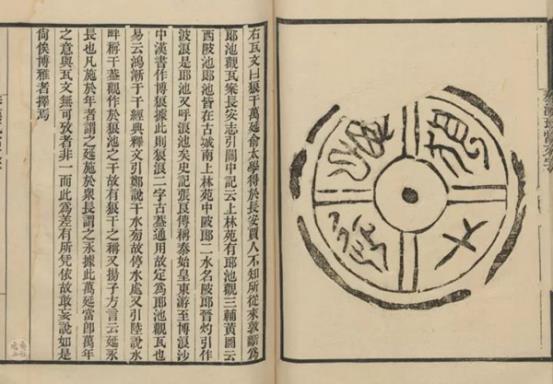 右瓦文曰狼干萬延俞太學得於長安賈人不知所從來敦斷爲
郎池觀瓦案長安志引關中記云上林苑有郎池觀三輔黃圖云
西陂池郎池皆在古城南上林苑中陂郎二水名陂郎晉灼引作
波浪是郎池又呼浪池矣史記張良傳稱秦始皇東游至博浪沙
中漢書作博狼據此則狼浪二字古蓋通用故定爲郎池觀瓦也
易云鴻漸于干經典釋文引鄭說干水旁故停水處又引陸說水
畔稱干蓋觀作於狼池之干故有狼干之稱又揚子方言云延永
長也凡施於年者謂之延施於衆長謂之永據此萬延當卽萬年
之意與瓦文無可攷者非一而此爲差有所凭依故敢妄說如是
尙俟博雅者擇焉